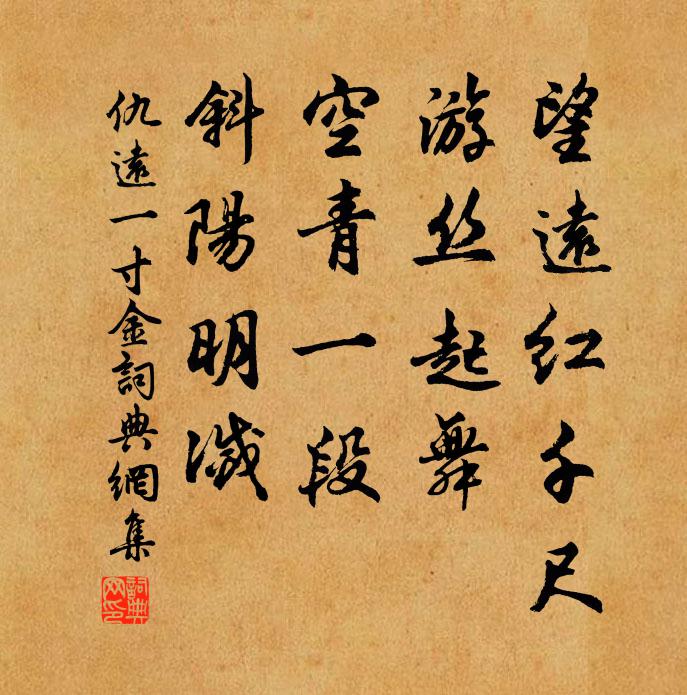 望遠红千尺
游丝起舞
空青一段
斜陽明滅
仇遠一寸金詞典網集
詞典网印